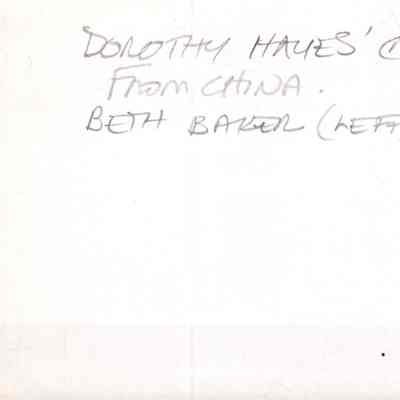 DOROTHY HAYES' (
FROM CHINA.
BETH BAKER (LEFT